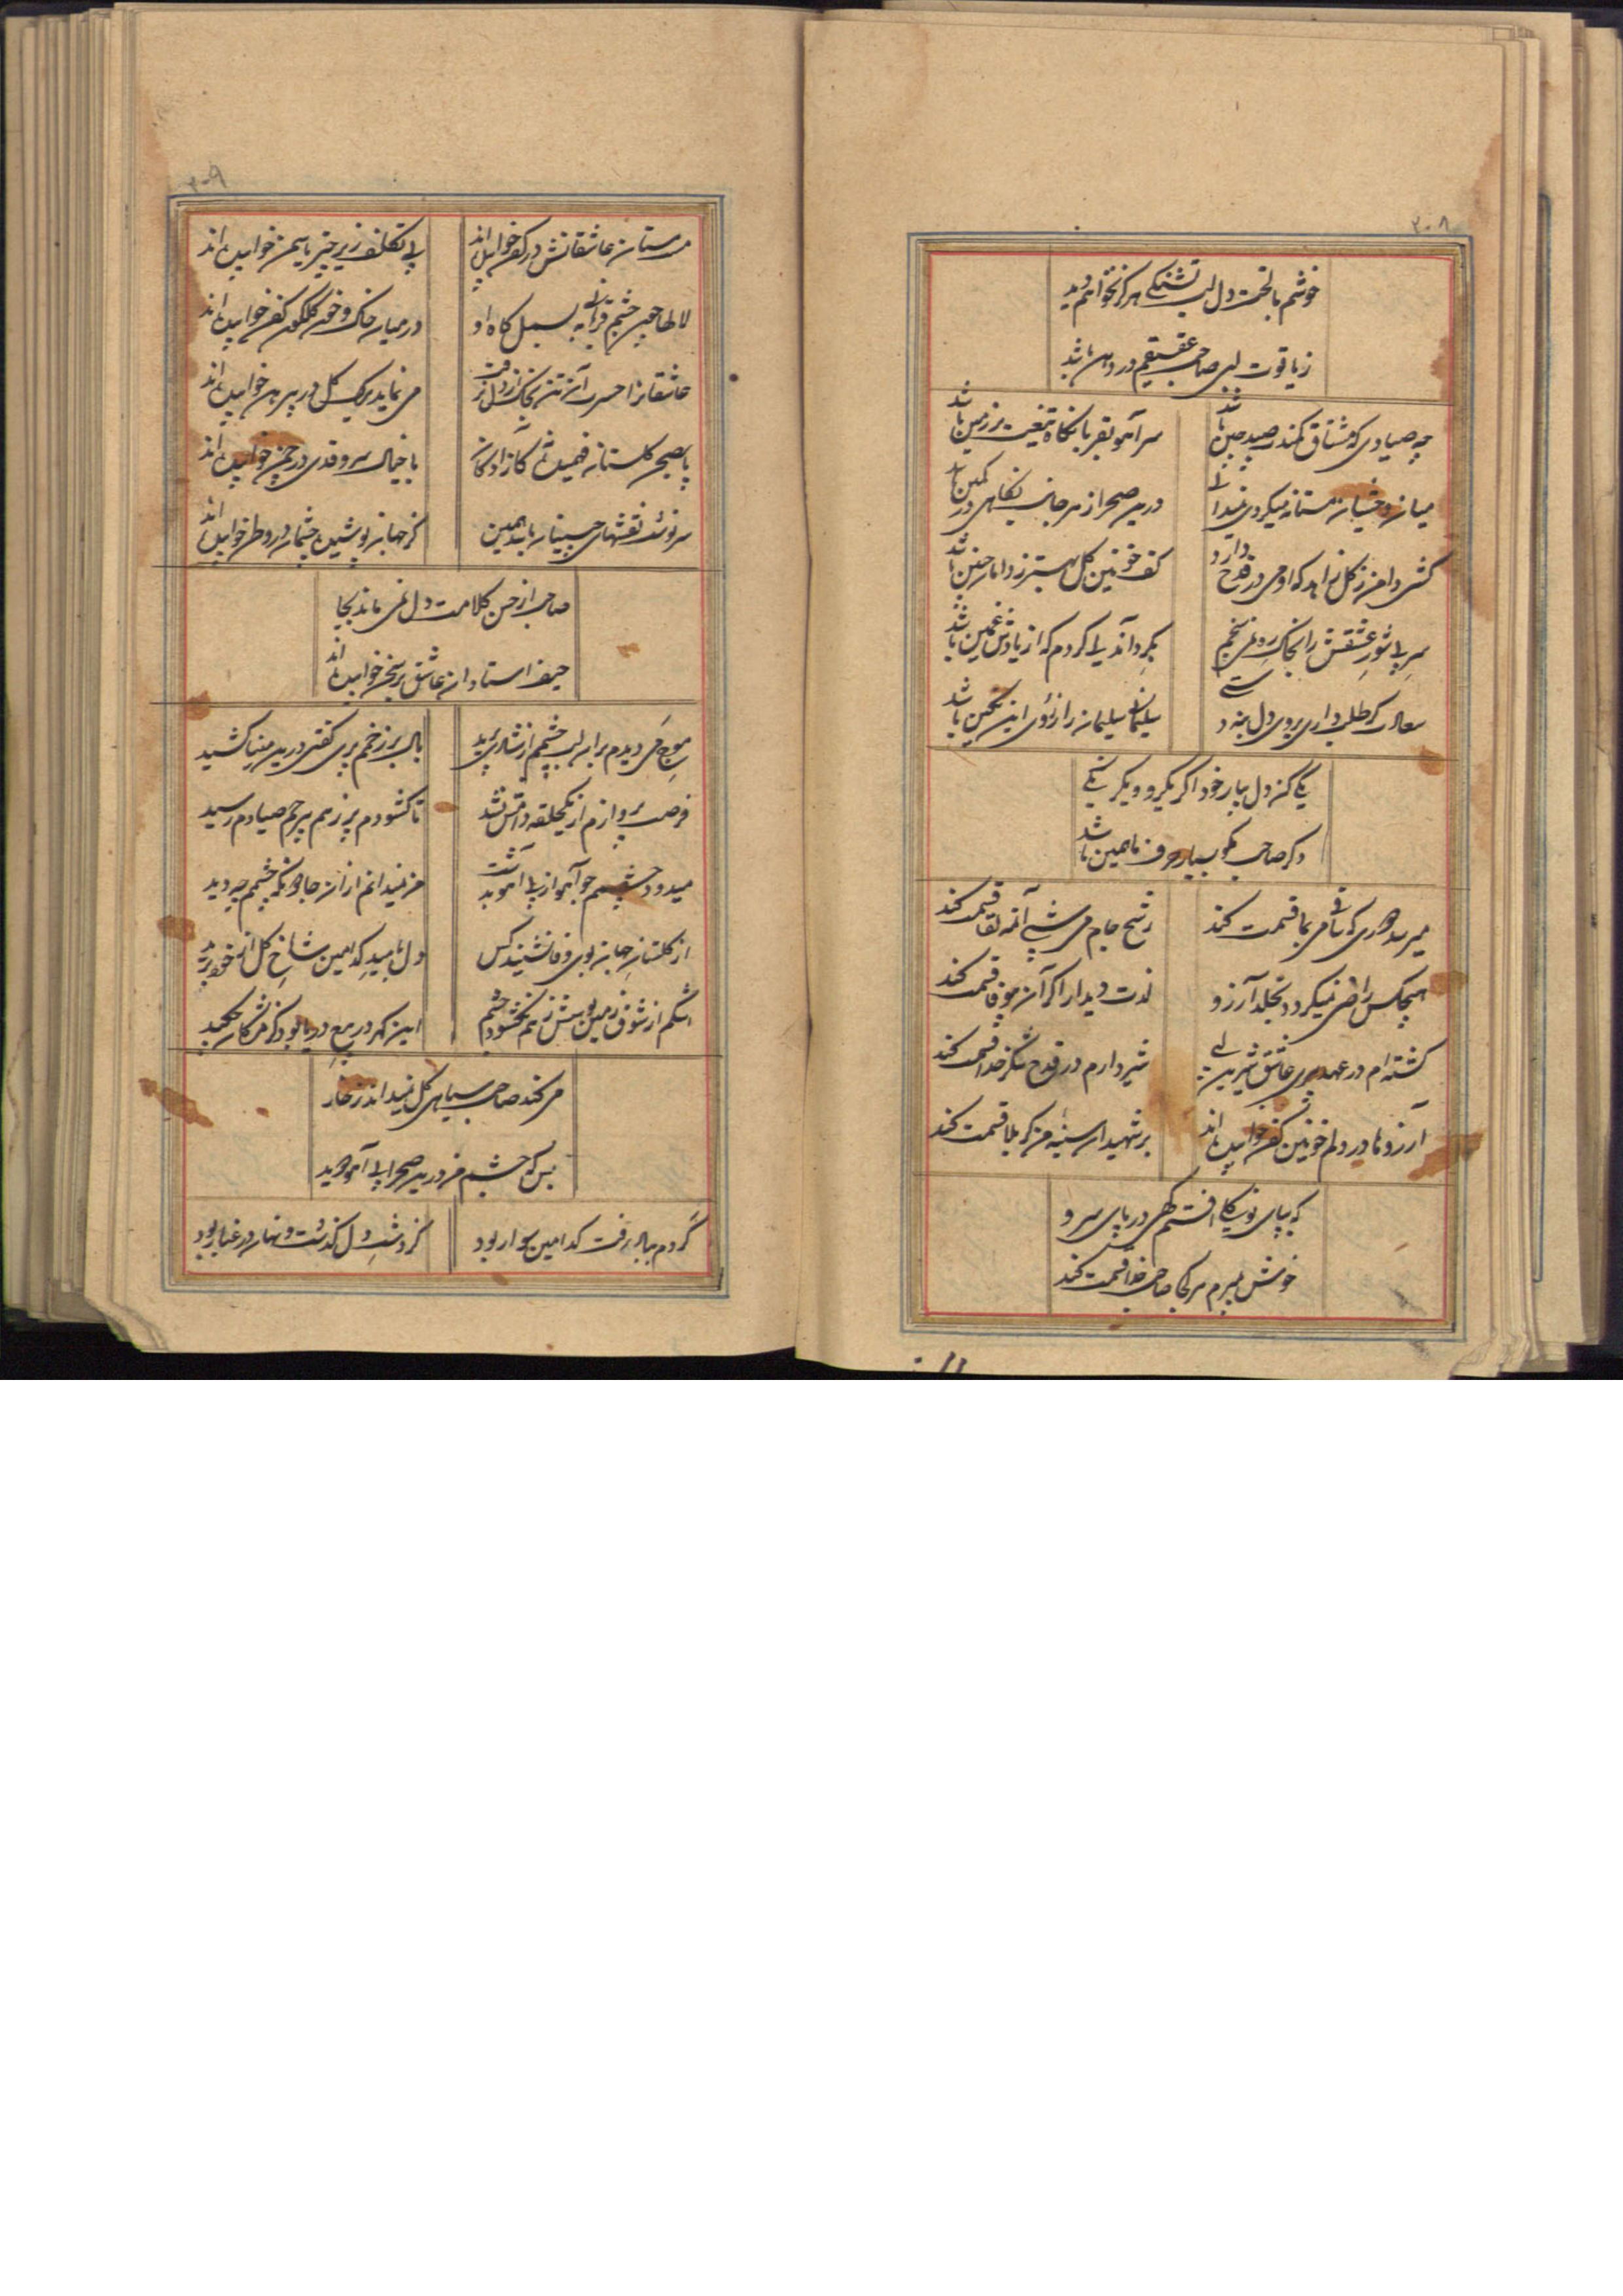 ۲۰۸
خوشم با لخت دل لب تشنگی هرگز نخواهم دید
ز یاقوت لبی صاحب عقیقم در دهان باشد
چه صیادی که مشتاق کمندت صید چین باشد
سر آهو بقربان نگاه تیغت بر زمین باشد
میان وحشیان مستانه میگردی نمیدانی
درین صحرا ز هر جانب نگاهی در کمین باشد
کشی دامن ز گل
کف خونین گل بهتر ز دامان چنین باشد
سر بی شور عشقش را بخاک ره نمی سنجم
بگرد آن دلی گردم که از یادش غمین باشد
سعادت گر طلب داری بروی دل بنه دستی
سلیمان سلیمان را ز روی این نگین باشد
یکی کن دل بیار خود اگر یکرو و یکرنگی
دگر صاحب مگو بسیار حرف ما همین باشد
میرسد دوری که ساقی می بما قسمت کند
رشح جام می شه آئنه لقا قسمت کند
هیچکس راضی نمیگردد بخلد آرزو
لذت دیدار اگر آن بیوفا قسمت کند
گشته ام در عهد پیری عاشق شیرین لبی
شیر دارم در قدح شکر خدا قسمت کند
آرزوها در دلم خونین کفن خوابیده اند
بر شهیدان سینه من کربلا قسمت کند
که بپای نونیکا افتم گهی در پای سرو
خوش بمیرم هر کجا صاحب خدا قسمت کند
۲۰۹
مستان عاشقانش در کفن خوابیده اند
بی تکلف زیر چتر یاسمن خوابیده اند
لالها چون چشم قربانی به بسمل گاه او
در میان خاک و خون گلگون کفن خوابیده اند
عاشقانرا حسرت آن تن بخاک از دل نرفت
می نماید برگ گل در پیرهن خوابیده اند
با خیال سرو قدی در چمن خوابیده اند
سرنوشت نقشهای
کز جهان پوشیده چشمان در وطن خوابیده اند
صاحب از حسن کلامت دل نمی ماند بجا
حیف استادان عاشق بر سخن خوابیده اند
موج می دیدم بران لب چشمم از شادی پرید
بال بر زخمم پری گفتی درین مینا کشید
فرصت پروازم از یکحلقه دامش نشد
تا گشودم پر ز هم بیرحم صیادم رسید
میدود چشمم چو آهو از پی آهو بدشت
من نمیدانم ازان جادو نگه چشمم چه دید
از گلستان جهان بوی وفا نشنید کس
دل بامید که امین شاخ گل از خود برید
اشکم از شوق زمین بوسش ز هم نگشود چشم
این گهر در موج دریا بود کز مژگان چکید
می کند صاحب سیاهی گل نمیداند ز خار
بس که چشم من درین صحرا پی آهو دوید
گردم بباد رفت کدامین سوار بود
کز دشت دل گذشت و نهان در غبار بود